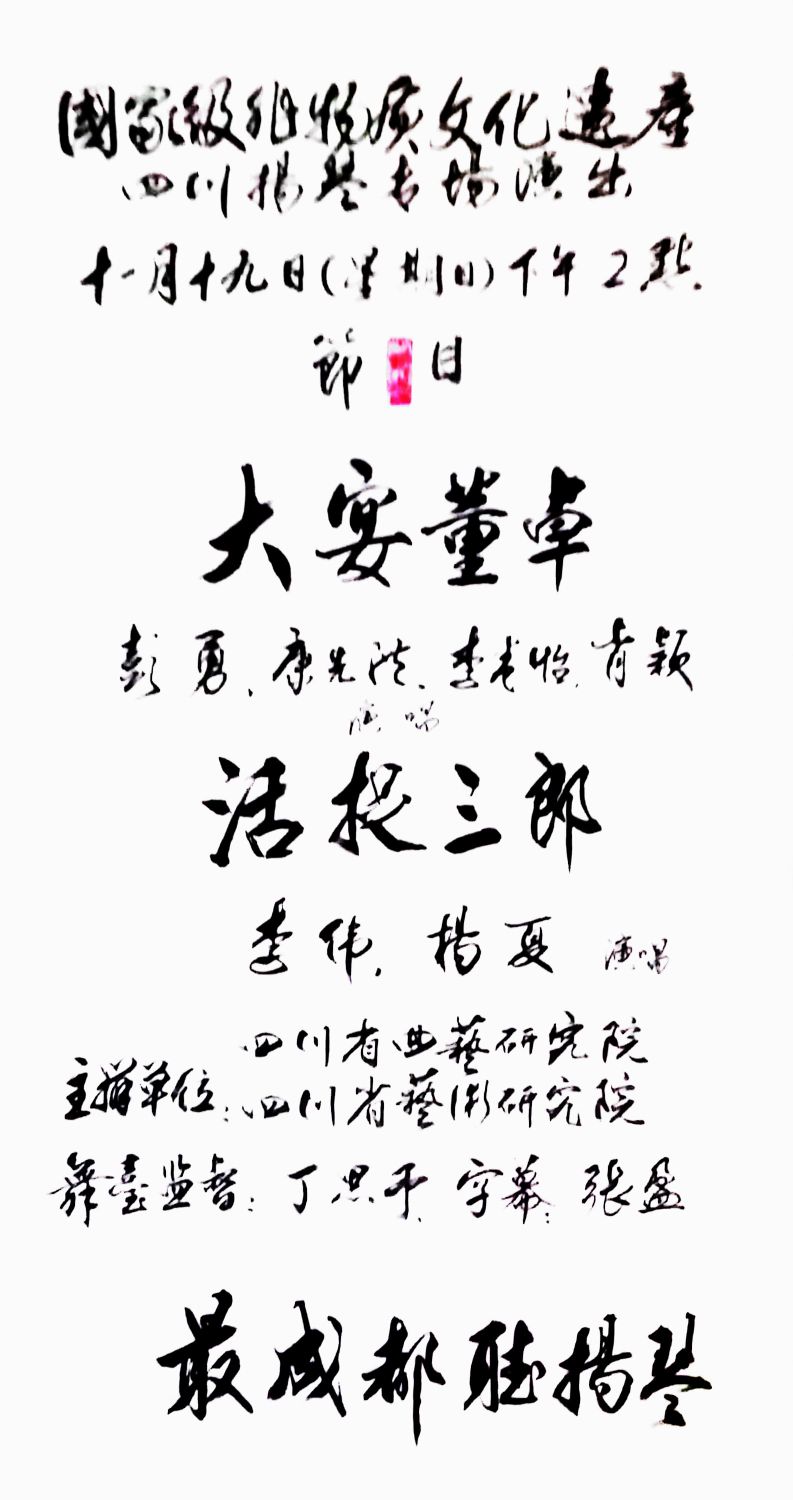 國家級非物质文化遗產
四川揚琴专場演出
十一月十九日(星期日)下午2點
節目
大宴董卓
彭勇、康先洪、李書怡、肖颖
演唱
活捉三郎
李伟、楊夏 演唱
四川省曲藝研究院
主辦單位:四川省藝術研究院
舞臺监督:丁思平、字幕:張盈
最成都聴揚琴